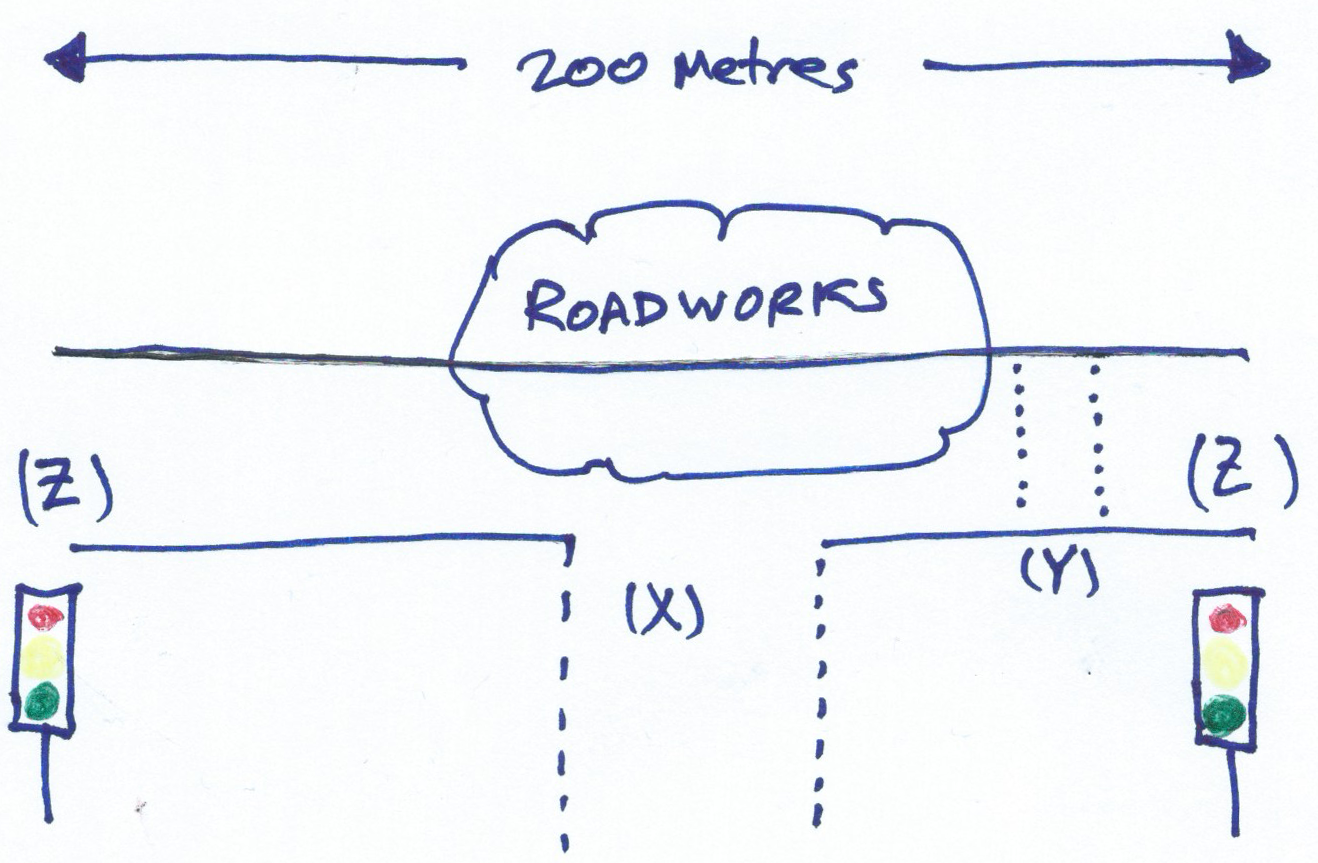 200 Metres
ROADWORKS
(Z)
(Z)
(X)
(Y)